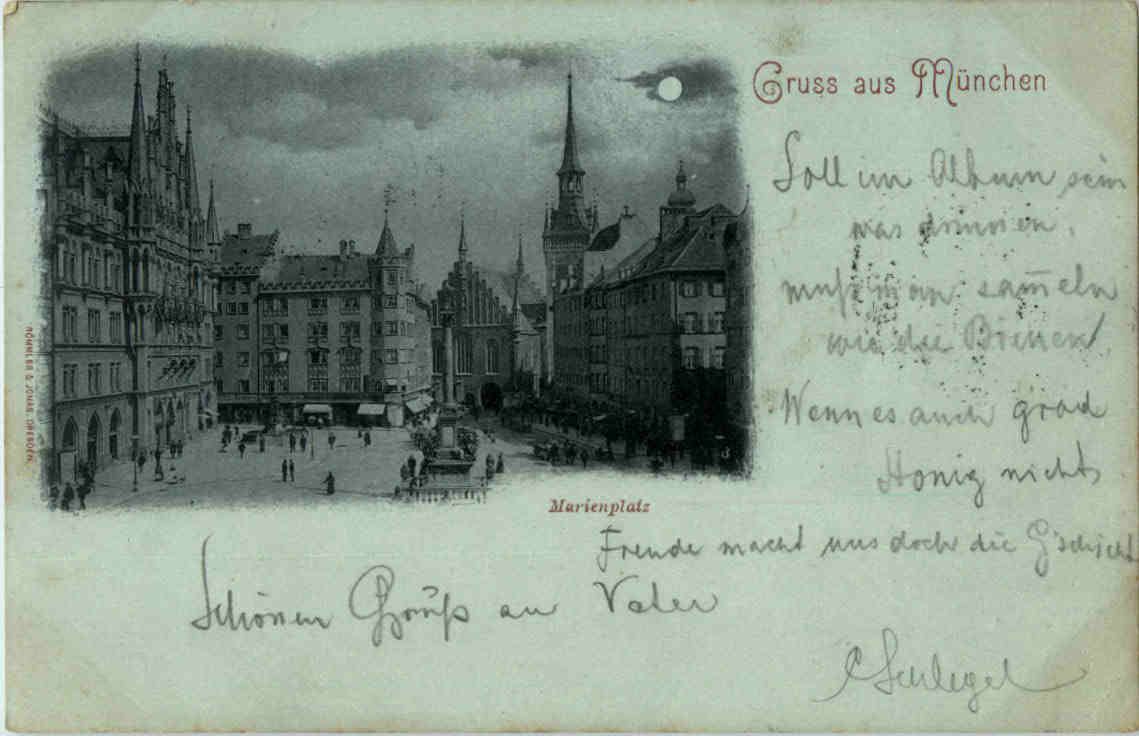 Gruss aus München
Soll im Album sein
was drinnen,
muß man sam̅eln
wie die Bienen!
Wenn es auch grad
Honig nicht,
Freude macht uns doch die G'schicht
Schönen Gruß an Vater
C Schlegel
Marienplatz
RÖMMLER & JONAS, DRESDEN.